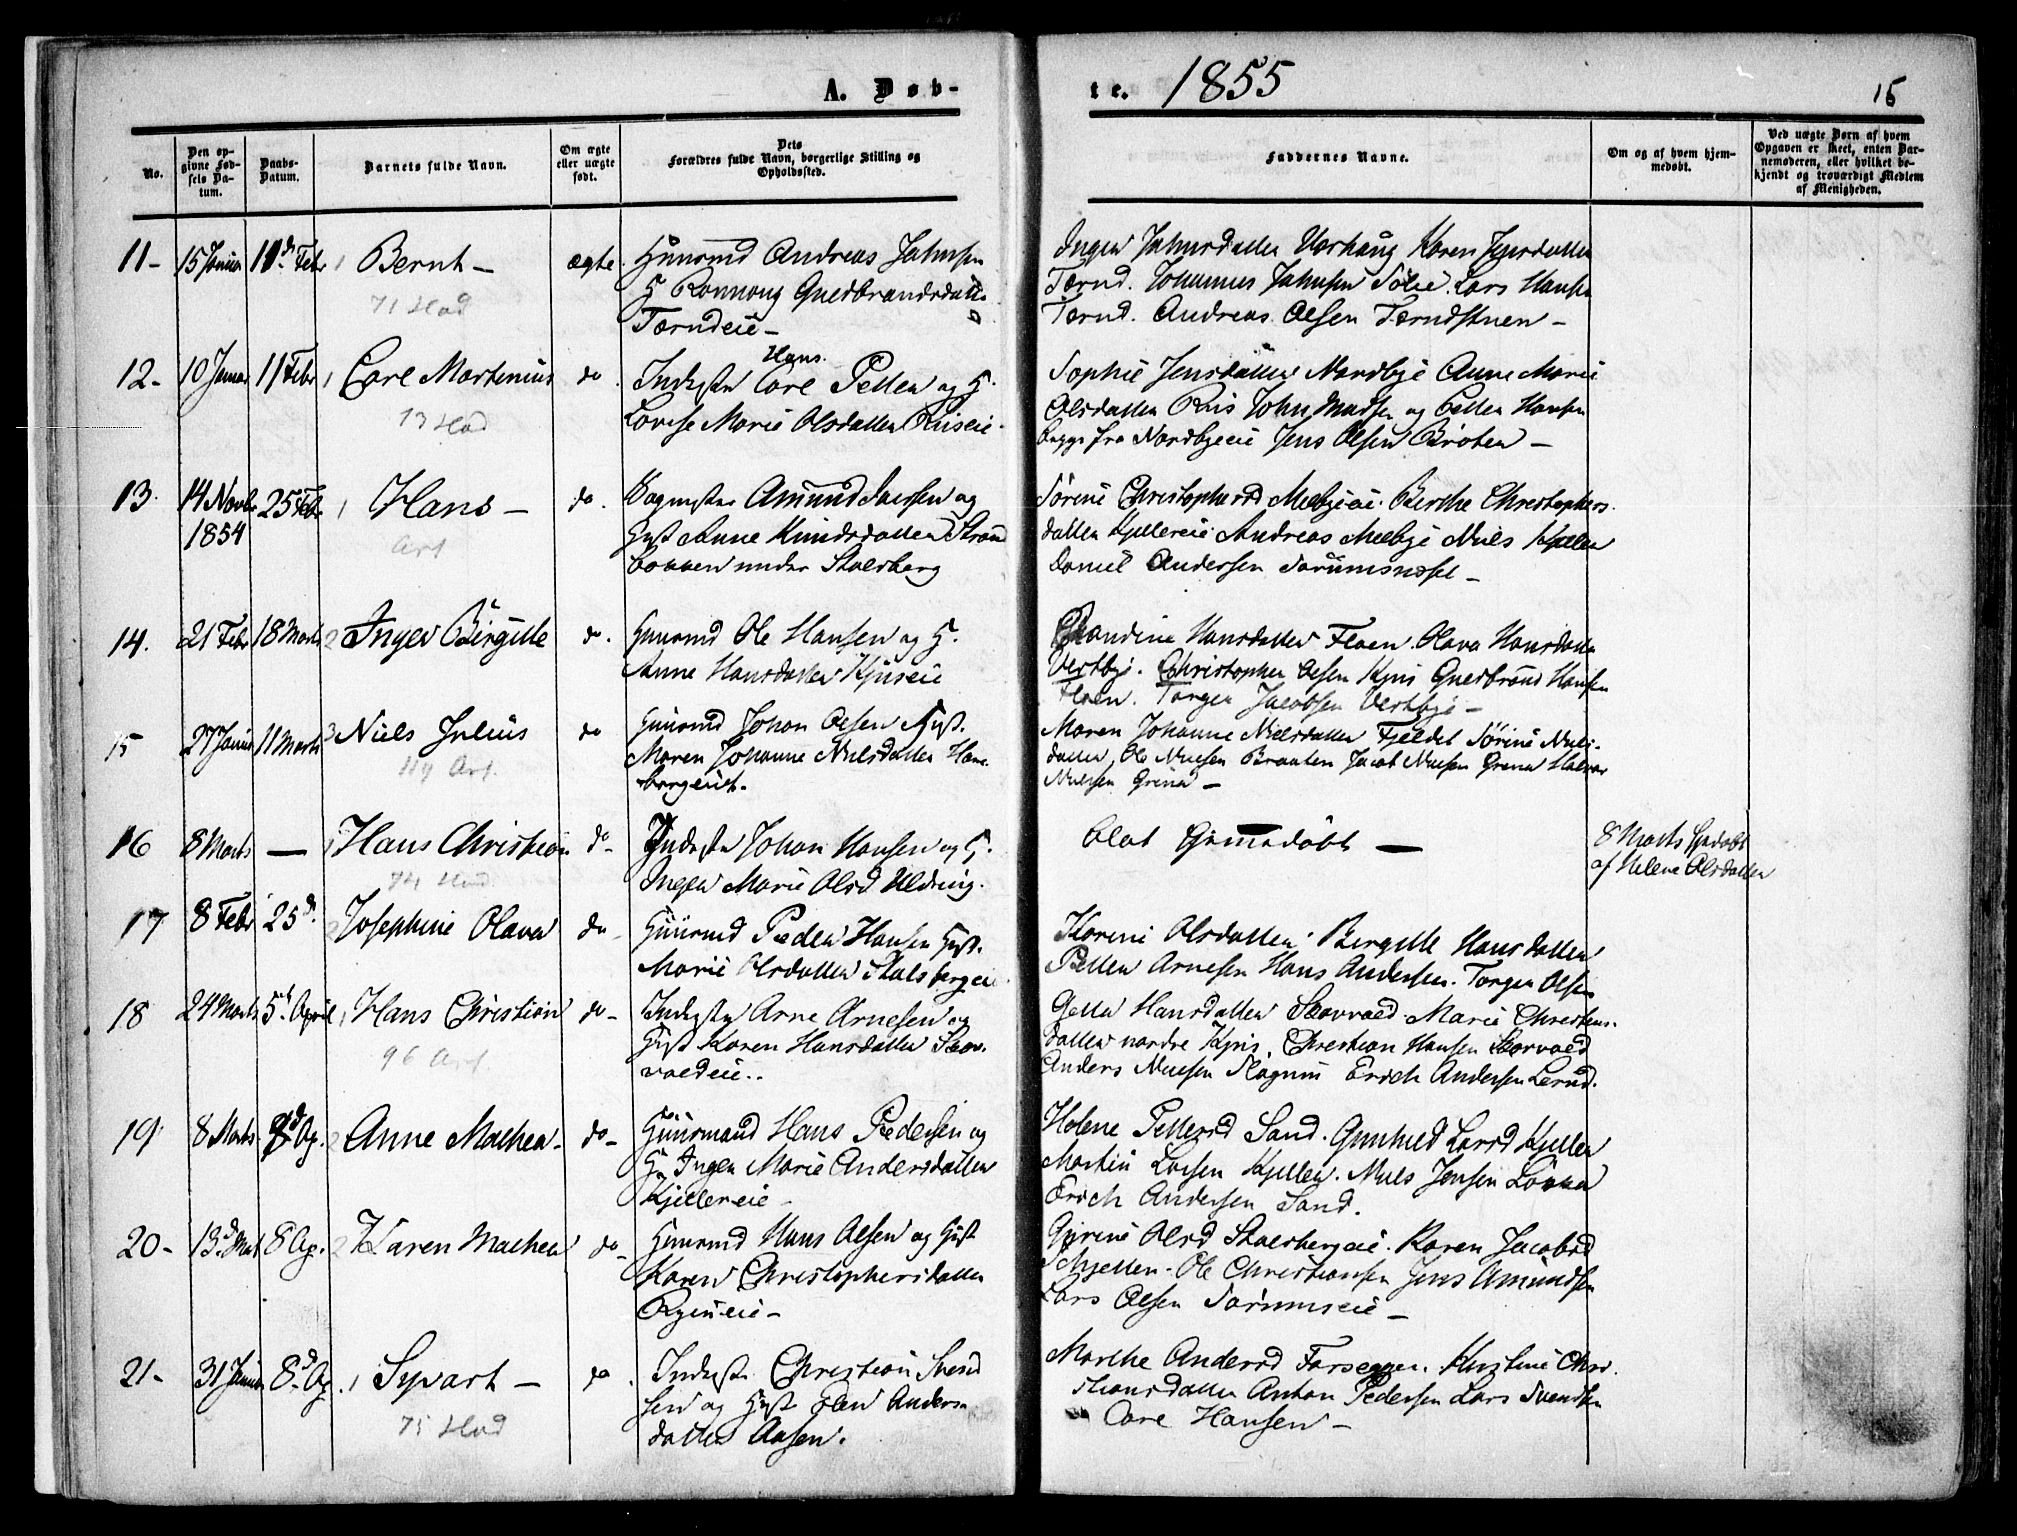 A. Døb-
te. 1855
15
No.
Den op-
givne Fød-
sels Da-
tum.
Daabs-
Datum.
Barnets fulde Navn.
Om ægte
eller uægte
født.
Dets
Forældres fulde Navn, borgerlige Stilling og
Opholdssted.
Faddernes Navne.
Om og af hvem hjem-
medøbt.
Ved uægte Børn af hvem
Opgaven er skeet, enten Bar-
nemoderen, eller hvilket be-
kjendt og troværdigt Medlem
af Menigheden.
11- 15 Januar 11 Febr 1 Bernt - ægte.
71 Hod
Huusmd Andreas Jahnsen
H Ronnoug Guldbrandsdatter
Tærndeie -
Inger Jahnsdatter Karen
Tærnd. Johannes Jahnsen Sølie. Lars Hansen
Tærnd. Andreas Olsen Tærndstuen -
12- 10 Januar 11 Febr 1 Carl Martinius do.
73 Hod
Hans
Inderster Carl Petter og H.
Lovise Marie Olsdatter Riiseie.
Sophie Jensdatter Nordbye Anne Marie
Olsdatter Riis John Madsen og Petter Hansen
begge fra Nordbyeeie Jens Olsen Bröten -
13. 14 Novbr 25 Febr 1 Hans - do.
1854
Art
Amund Larsen og
Hust Anne Knudsdatter Strand
bakken under Stalsberg
Sörine Christophersd Melbyeie. Berthe Christophers.
datter Kjellereie Andreas Melbye Niels Kjeller
Daniel Andersen Sörumsnesset -
14. 21 Febr 18 Marts 2 Inger Birgitte do.
Huusmd Ole Hansen og H.
Anne Hansdatter Kjuseie
Hansdatter Floen. Olava Hansdatter
Vestbye. Christopher Olsen Kjus Guldbrand Hansen
Floen. Torger Jacobsen Vestbye -
15 27 Januar 11 Marts 3 Niels Julius do
119 Art.
Huusmd Johan Olsen Hust.
Maren Johanne Nielsdatter Ham-
borgeiet.
Maren Johanne Nielsdatter Fjeldet Sörine Niels-
datter, Ole Nielsen Braaten Jacob Nielsen Grina Halvor
Nielsen Grina -
16 8 Marts — 1 Hans Christian do-
74 Hod
Inderster Johan Hansen og H.
Inger Marie Olsd Uldring.
blot hjemmedöbt —
8 Marts hjdöbt
af Helene Olsdatter
17 8 Febr 25 d. 2 Josephine Olava do-
Huusmd Peder Hansen Hust.
Marie Olsdatter Stalsbergeie
Karine Olsdatter Birgitte Hansdatter
Petter Arnesen Hans Andersen. Torger Olsen
18 24 Marts 5 April 1 Hans Christian do-
96 Art.
Inderster Arne Arnesen og
Hust Karen Hansdatter Skov-
valdeie..
Hansdatter Skovvald. Marie Christens.
datter nordre Kjus. Christian Hansen Skovvald
Anders Nielsen Erich Andersen
19 8 Marts 8 d Ap. 2 Anne Mathea - do-
Huusmand Hans Pedersen og
H. Inger Marie Andersdatter
Kjellereie -
Helene Pettersd Sand. Gunhild Larsd Kjeller
Martin Larsen Kjeller. Niels Jensen Löken
Erich Andersen Sand.
20- 13 d Mart 8 Ap. 2 Karen Mathea do-
Huusmd Hans Olsen og Hust
Karen Christophersdatter
-
Olsd Stalsbergeie. Karen Jacobsd
Schjetten. Ole Christiansen Jens Amundsen
Lars Olsen Sörumseie -
21- 31 Januar 8 d Ap. 1 Syvart - do.
75 Hod
Inderst. Christian Svend
sen og Hust Olea Anders-
datter Aasen.
Marthe Andersd Farseggen. Kristine Chri-
stiansdatter Anton Pedersen Lars Svendsen
Carl Hansen -